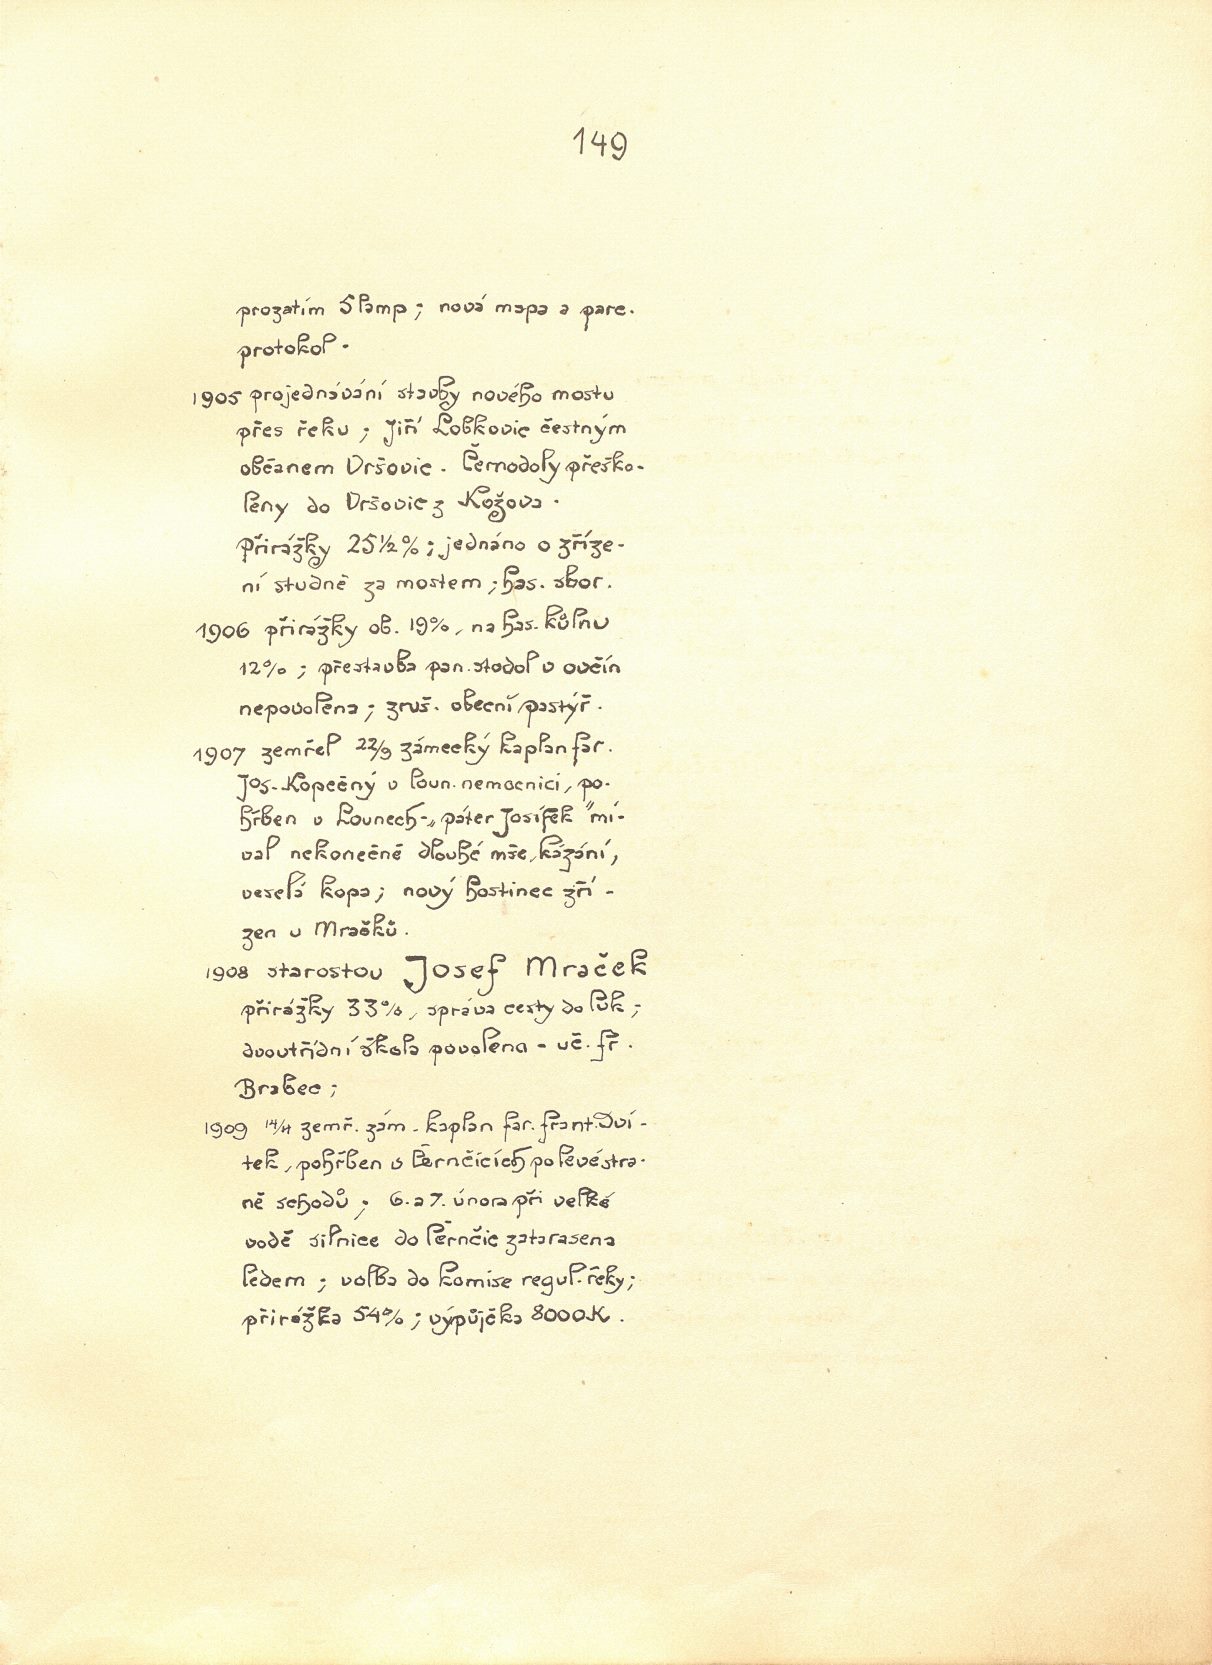 149
prozatím 5 lamp ; nová mapa a parc.
protokol.
1905 projednávání stavby nového mostu
přes řeku ; Jiří Lobkovic čestným
občanem Vršovic. Černodoly přeško-
leny do Vršovic z Kožova.
Přirážky 25 ½ % ; jednáno o zříze-
ní studně za mostem ; has. sbor.
1906 přirážky ob. 19%, na has. kůlnu
12% ; přestavba pan. stodol v ovčín
nepovolena ; zruš. obecní pastýř.
1907 zemřel 22/9 zámecký kaplan far.
Jos. Kopečný v loun. nemocnici, po-
hřben v Lounech - „páter Josífek" mí-
val nekonečně dlouhé mše, kázání,
veselá kopa ; nový hostinec zří-
zen u Mračků.
1908 starostou Josef Mraček
přirážky 33%, správa cesty do luk ;
dvoutřídní škola povolena - uč. Fr.
Brabec ;
1909 14/4 zemř. zám. kaplan far. Frant. Dví-
tek, pohřben v Černčicích po levé stra-
ně schodů ; 6. a 7. února při velké
vodě silnice do Černčic zatarasena
ledem ; volba do komise regul. řeky ;
přirážka 54% ; výpůjčka 8000 K.